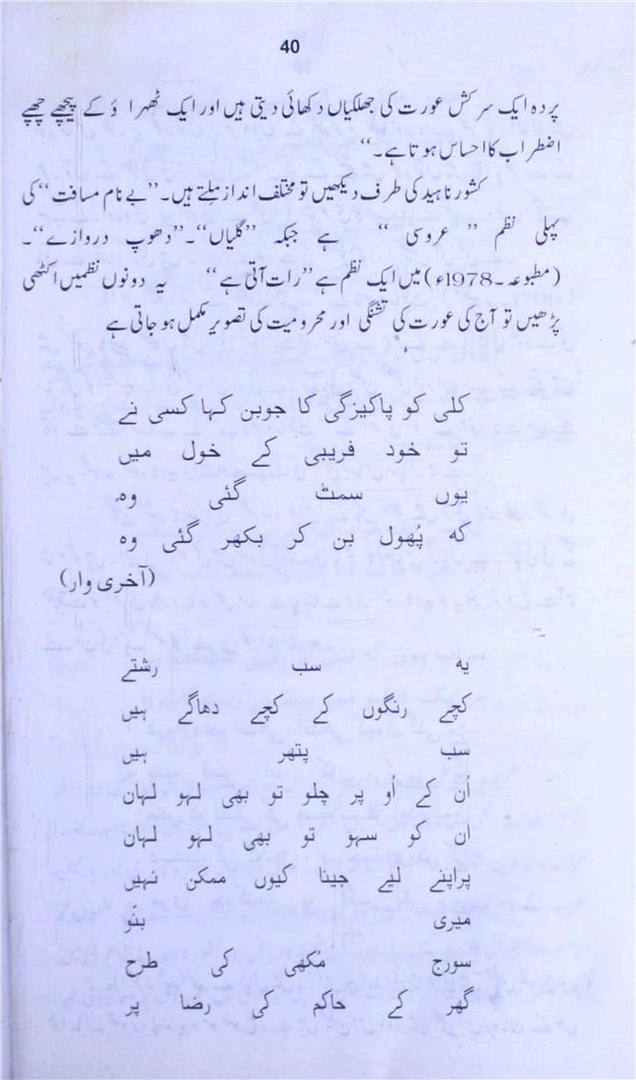 40
پردہ ایک سرکش عورت کی جھلکیاں دکھائی دیتی ہیں اور ایک ٹھہراؤ کے پیچھے چھپے
اضطراب کا احساس ہوتا ہے۔‘‘
کشور ناہید کی طرف دیکھیں تو مختلف انداز ملتے ہیں۔ ’’بے نام مسافت‘‘ کی
پہلی نظم ’’عروسی‘‘ ہے جبکہ ’’گلیاں‘‘۔ ’’دھوپ دروازے‘‘۔
(مطبوعہ۔ 1978ء) میں ایک نظم ہے ’’رات آتی ہے‘‘ یہ دونوں نظمیں اکٹھی
پڑھیں تو آج کی عورت کی تشنگی اور محرومیت کی تصویر مکمل ہو جاتی ہے
کلی کو پاکیزگی کا جوبن کہا کسی نے
تو خود فریبی کے خول میں
یوں سمٹ گئی وہ
کہ پُھول بن کر بکھر گئی وہ
(آخری وار)
یہ سب رشتے
کچے رنگوں کے کچے دھاگے ہیں
سب پتھر ہیں
اُن کے اُوپر چلو تو بھی لہو لہان
ان کو سہو تو بھی لہو لہان
پراپنے لیے جینا کیوں ممکن نہیں
میری بنّو
سورج مُکھی کی طرح
گھر کے حاکم کی رضا پر